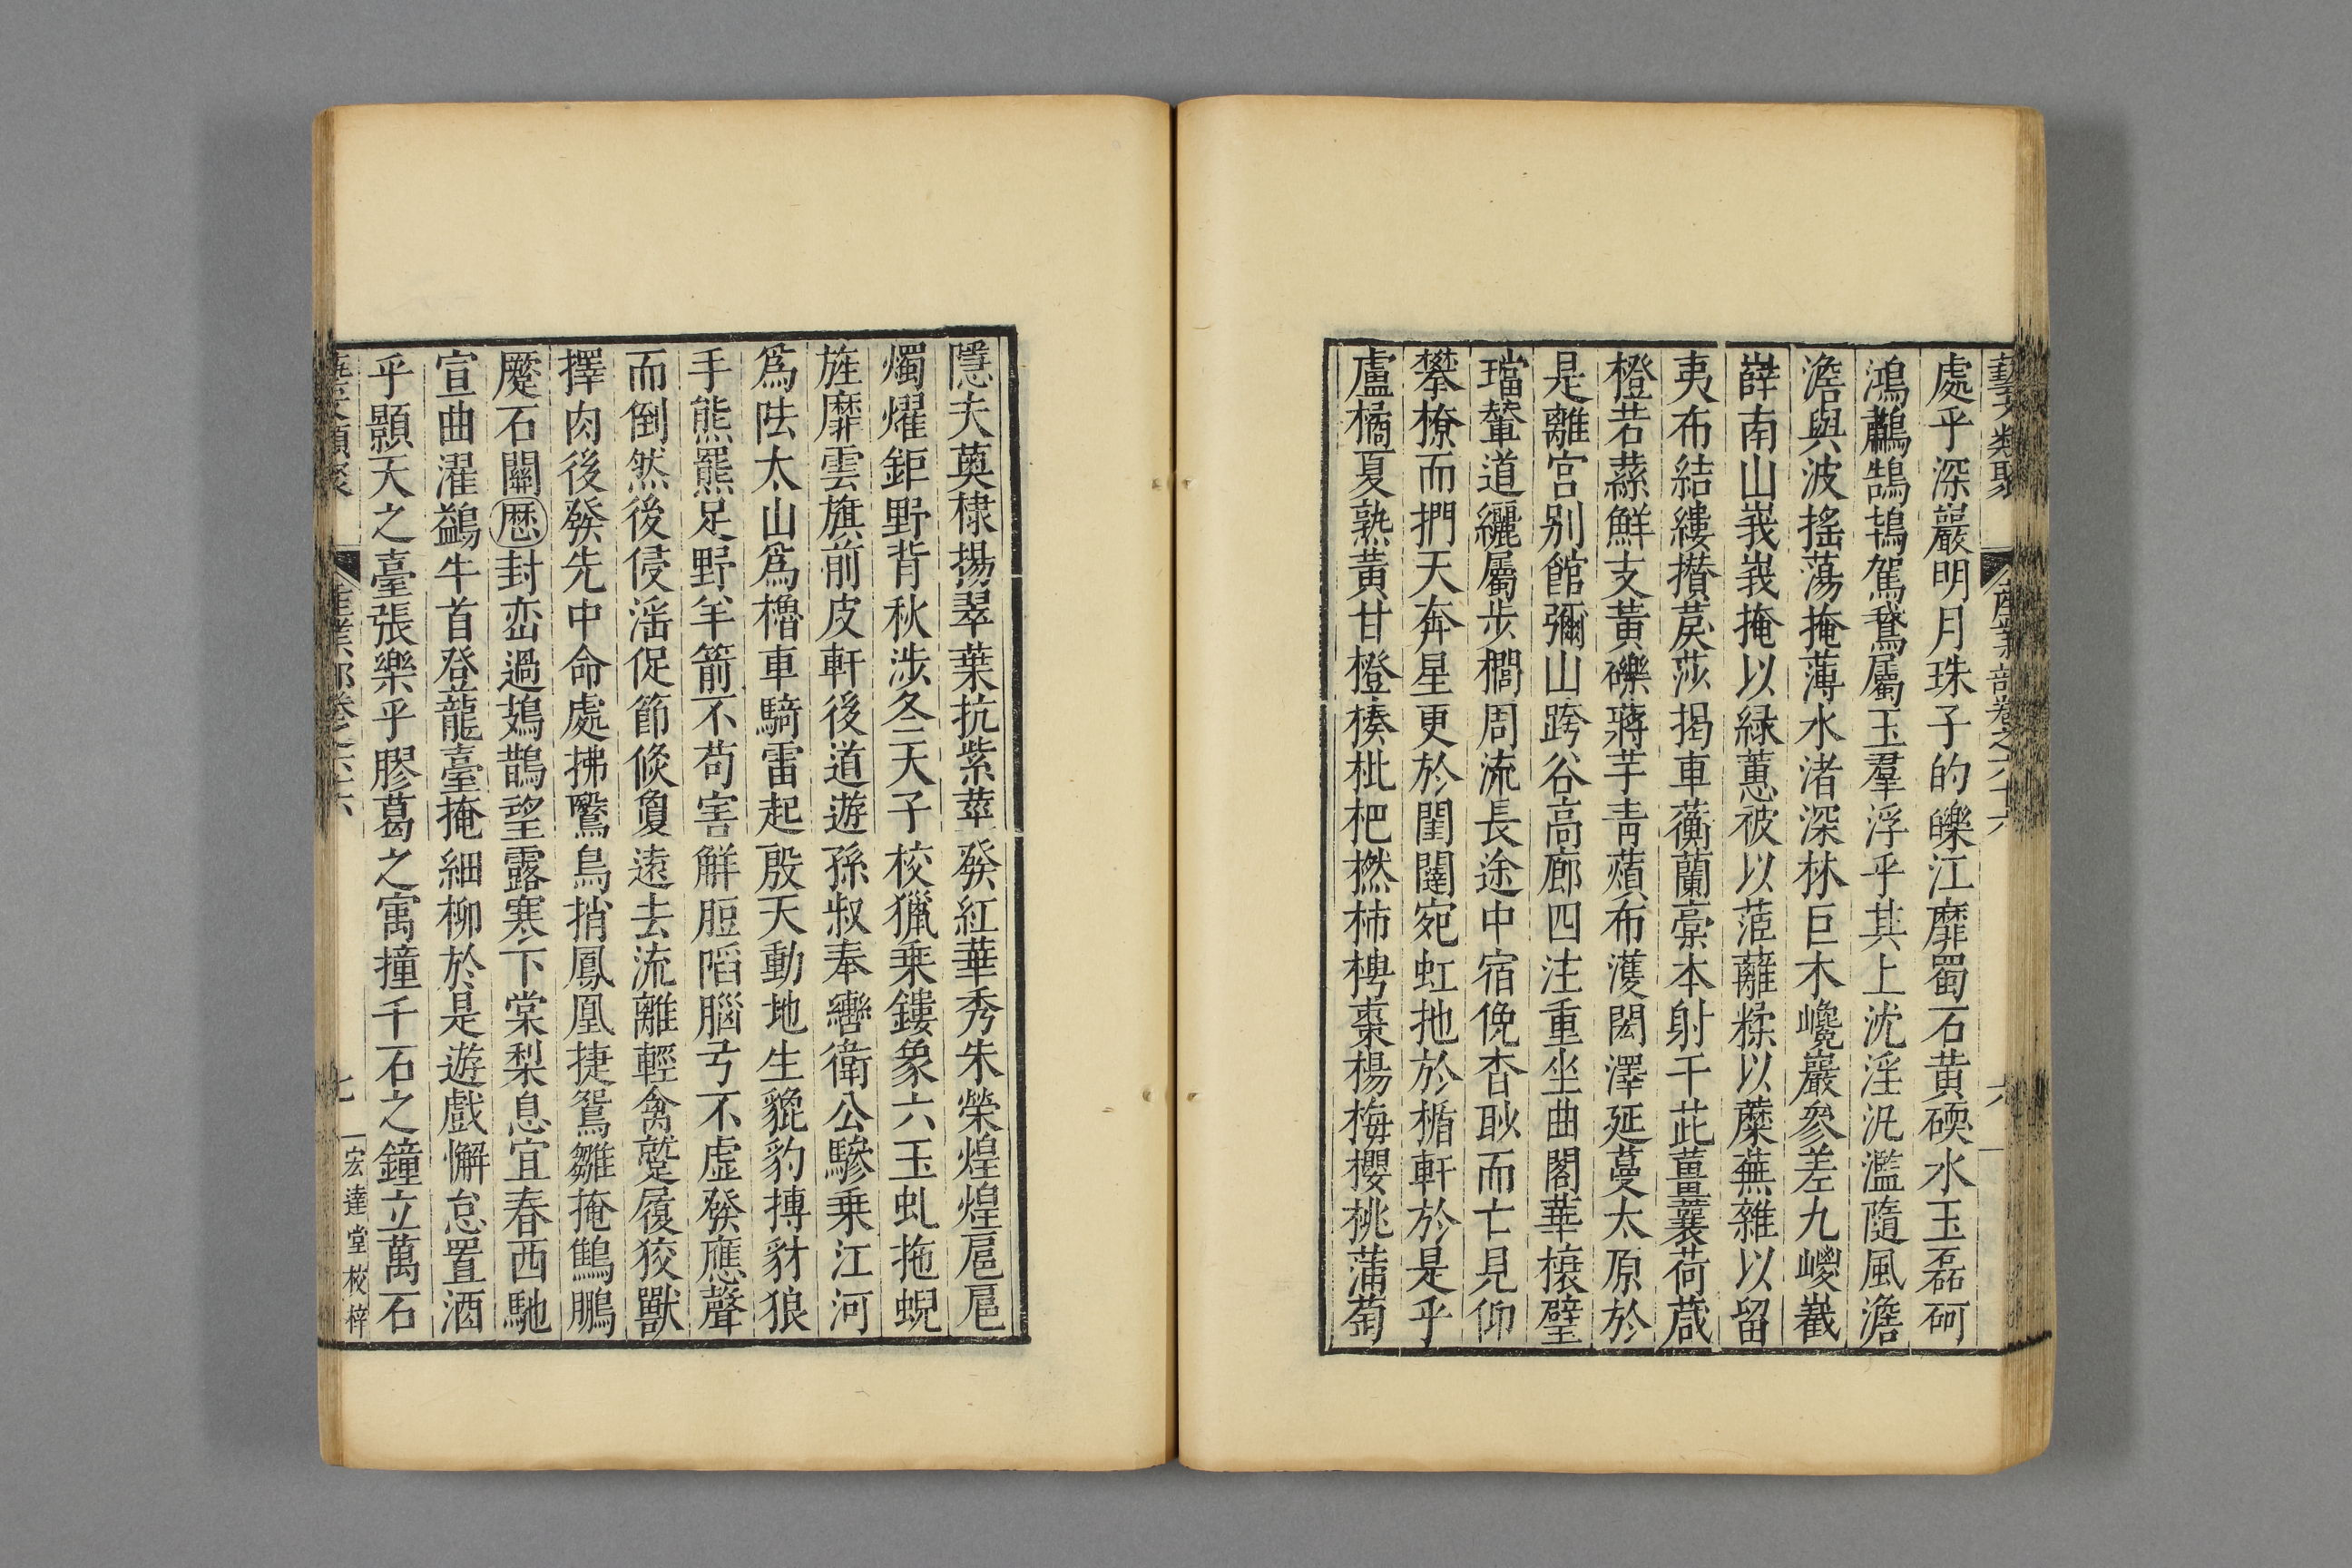 藝文類聚 產業部卷之六十六 六
處乎深巖明月珠子的皪江靡蜀石黃碝水玉磊砢
鴻鷫鵠鴇駕鵞屬玉羣浮乎其上沈淫汎濫隨風澹
澹與波搖蕩掩薄水渚深林巨木巉巖參差九嵕嶻
嶭南山峩峩掩以緑蕙被以茳蘺糅以蘪蕪雜以留
夷布結縷攅莀莎揭車蘅蘭稾本射干茈薑蘘荷葴
橙若蓀鮮支黃礫蔣芧青薠布濩閎澤延蔓太原於
是離宮別館彌山跨谷高廊四注重坐曲閣華榱璧
璫輦道纚屬步櫩周流長途中宿俛杳眇而亡見仰
攀橑而捫天奔星更於閨闥宛虹扡於楯軒於是乎
盧橘夏熟黃甘橙楱枇杷橪柿梬棗楊梅櫻桃蒲萄
隱夫薁棣揚翠葉抗紫莖發紅華秀朱榮煌煌扈扈
燭燿鉅野背秋涉冬天子校獵乗鏤象六玉虬拖蜺
旌靡雲旗前皮軒後道遊孫叔奉轡衛公驂乗江河
爲呿太山爲櫓車騎雷起殷天動地生貔豹摶豺狼
手熊羆足野羊箭不苟害解脰䧟腦弓不虛發應聲
而倒然後侵淫促節倏敻遠去流離輕禽蹵履狡獸
擇肉後發先中命處拂鷖鳥捎鳳凰捷鴛雛掩鷦鵬
蹷石關歷封巒過鳷鵲望露寒下棠梨息宜春西馳
宣曲濯鷁牛首登龍臺掩細柳於是遊戲懈怠置酒
乎顥天之臺張樂乎膠葛之寓撞千石之鐘立萬石
藝文類聚 產業部卷之六十六 七 宏達堂校梓